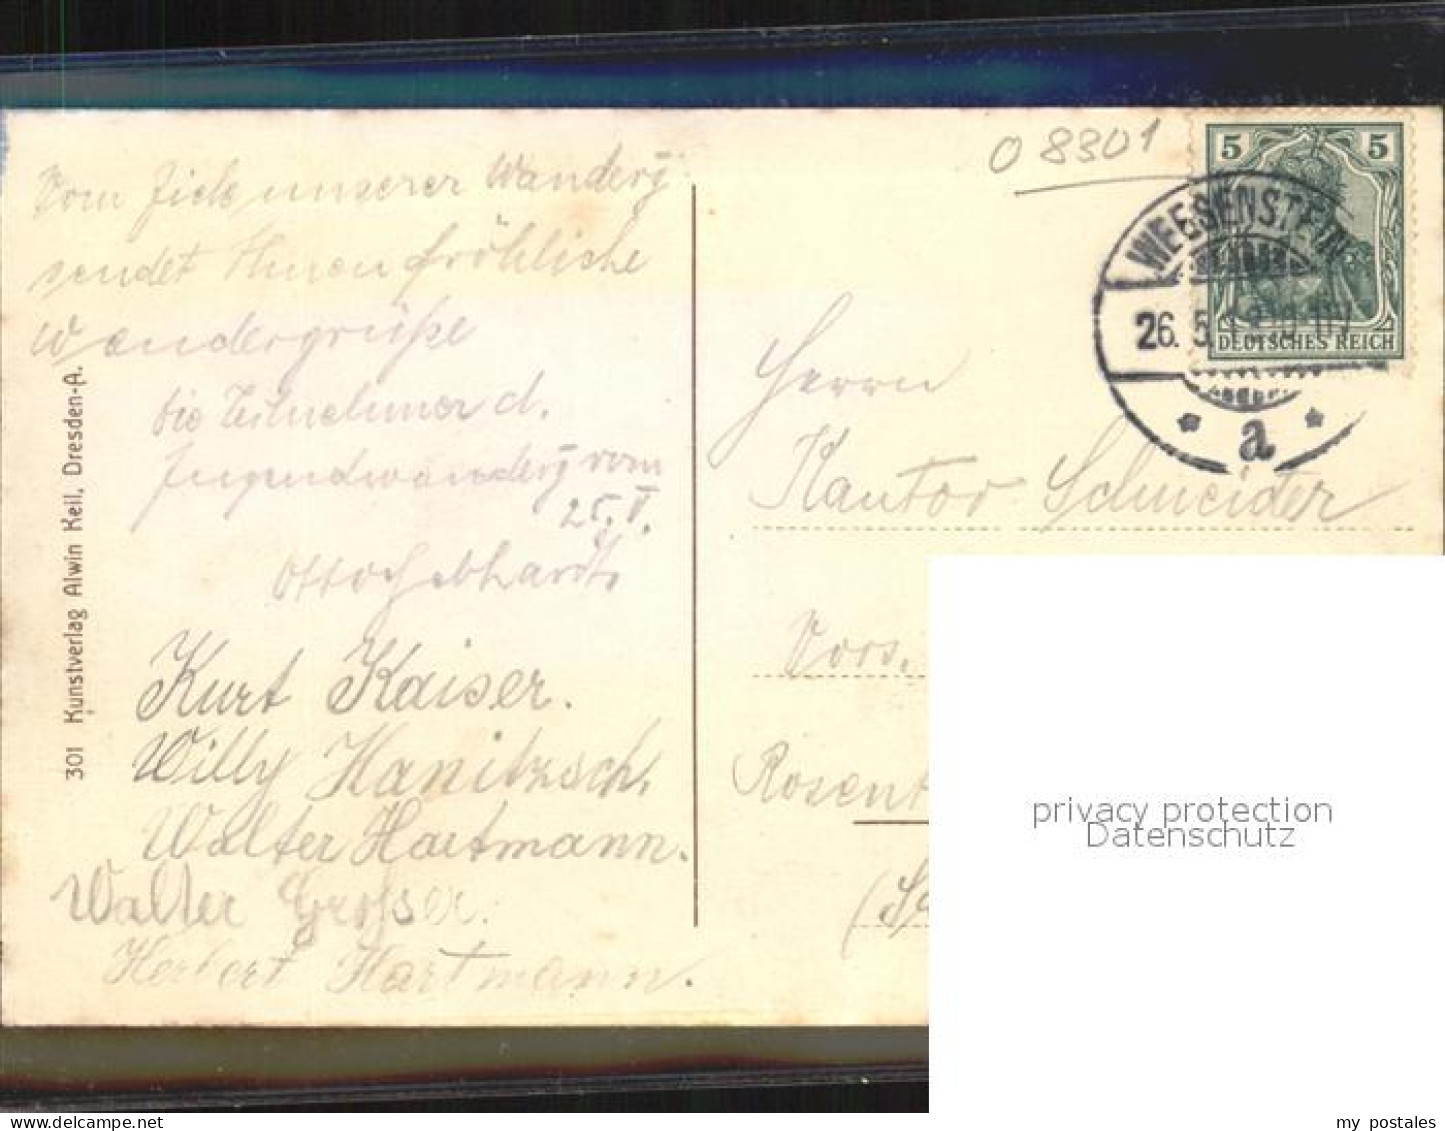 Vom Ziele unserer Wanderg
sendet Ihnen fröhliche
Wandergrüße
die Teilnehmer d.
Jugendwanderg vom
25. V.
Otto Gebhardt
Kurt Kaiser.
Willy Hanitzsch.
Walter Hartmann.
Walter Großer.
Herbert Hartmann.
301 Kunstverlag Alwin Keil, Dresden-A.
O 8301
5 5
DEUTSCHES REICH
WEESENSTEIN
26. 5.
a
Herrn
Kantor Schneider
Vors.
Rosent
(Sa
privacy protection
Datenschutz
my postales